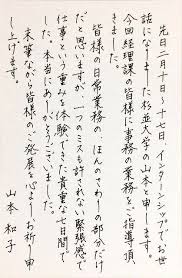 先日二月十日〜十七日、インターンシップでお世
話になりました杉並大学の山本と申します。
今回経理課の皆様に事務の業務をご指導頂
きました。
皆様の日常業務のごほんのさわりの部分だけ
だと思いますが、一つのミスも許されない緊張感で
仕事という重みを体験できた貴重な七日間で
した。本当にありがとうございました。
末筆ながら皆様のご発展を心よりお祈り申
し上げます。
山本和子